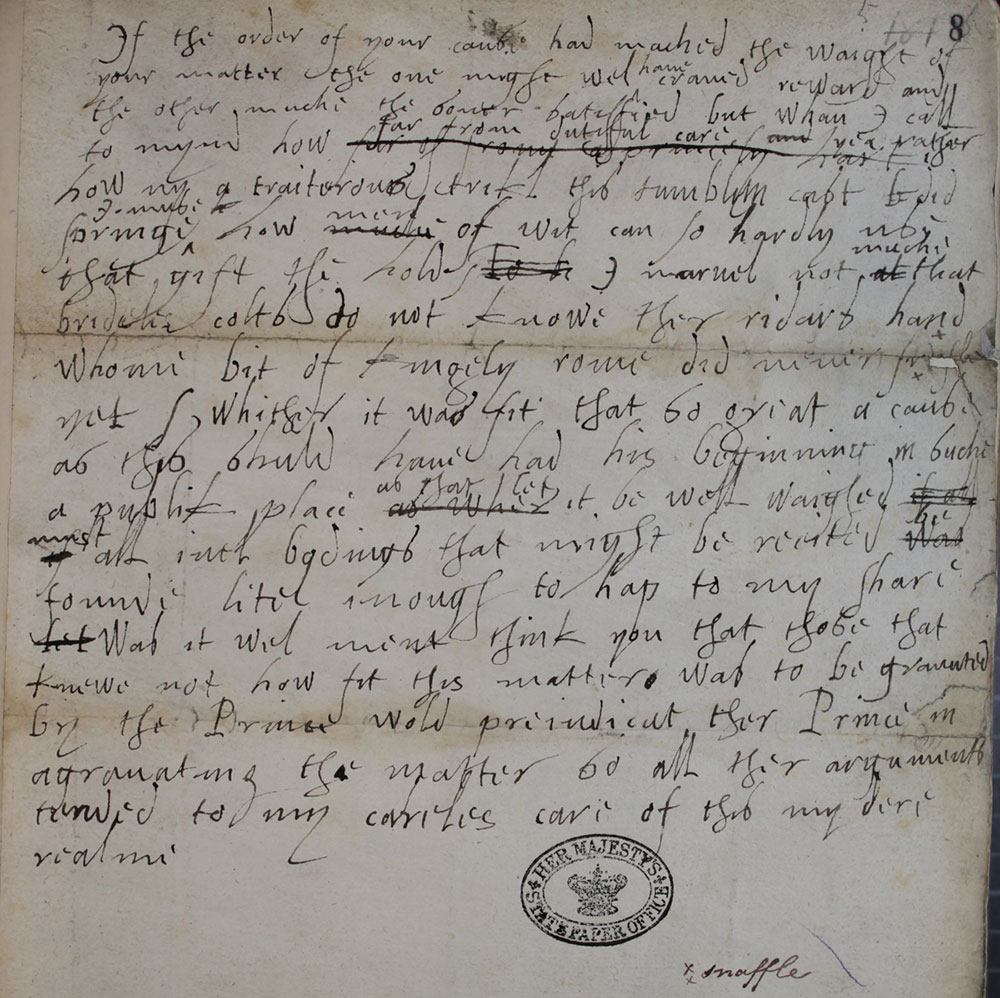 8
If the order of your cause had mached the waight of
your matter the one might wel have craved reward and
the other muche the soner satisfied but whan I call
to mynd how far from dutiful care yea rather
how ny a traiterous trik this tumblin cast did
springe I muse how men of wit can so hardly use
that gift the hold I marvel not muche that
bridelles colts do not knowe ther ridars hand
whome bit of kingely rome did never snaffle
yet Whither it was fit that so great a cause
as this shuld have had his beginninge in suche
a publik place as that let it be well waighed
must all ivel bodings that might be recited be
founde litel inough to hap to my share
Was it wel ment think you that those that
knewe not how fit this matter was to be graunted
by the Prince wold preiudicat ther Prince in
agravating the matter so all ther arguments
tended to my careles care of this my dere
realme
HER MAJESTY'S
STATE PAPER OFFICE
snaffle